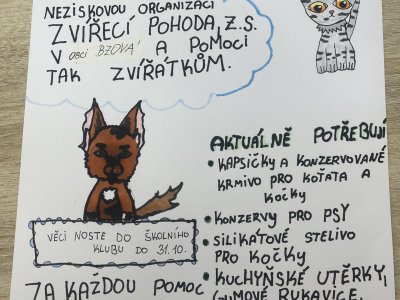 NEZISKOVOU ORGANIZACI
ZVÍŘECÍ POHODA, Z.S.
V OBCI BZOVÁ A POMOCI
TAK ZVÍŘÁTKŮM.
AKTUÁLNĚ POTŘEBUJÍ
• KAPSIČKY A KONZERVOVANÉ
KRMIVO PRO KOŤATA A
KOČKY
• KONZERVY PRO PSY
• SILIKÁTOVÉ STELIVO
PRO KOČKY
• KUCHYŇSKÉ UTĚRKY,
GUMOVÉ RUKAVICE,
VĚCI NOSTE DO ŠKOLNÍHO
KLUBU DO 31.10.
ZA KAŽDOU POMOC